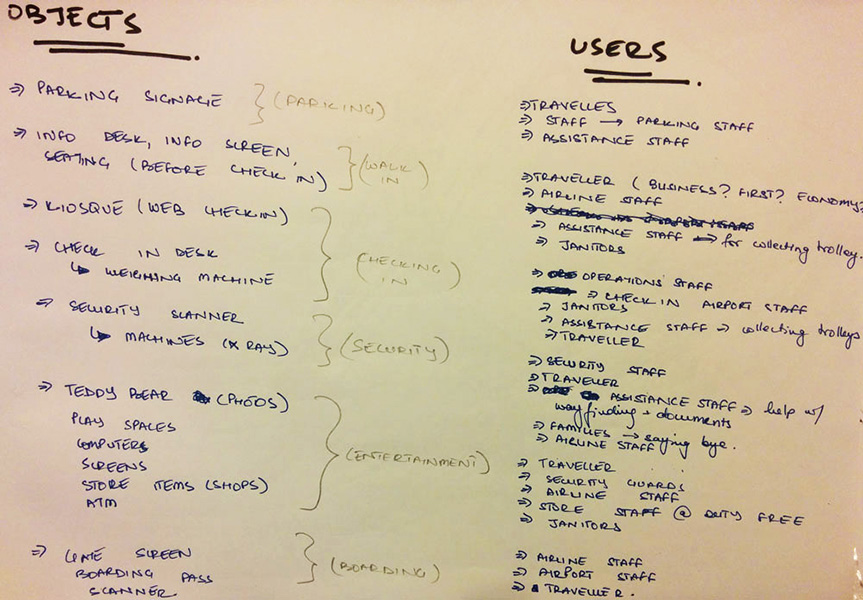 OBJECTS
⇒ PARKING SIGNAGE } (PARKING)
⇒ INFO DESK, INFO SCREEN,
SEATING (BEFORE CHECK IN) } (WALK IN)
⇒ KIOSQUE (WEB CHECKIN)
⇒ CHECK IN DESK
↳ WEIGHING MACHINE
(CHECKING IN)
⇒ SECURITY SCANNER
↳ MACHINES (X RAY)
(SECURITY)
⇒ TEDDY BEAR (PHOTOS)
PLAY SPACES
COMPUTERS
SCREENS
STORE ITEMS (SHOPS)
ATM
(ENTERTAINMENT)
⇒ GATE SCREEN
BOARDING PASS
SCANNER
(BOARDING)
USERS
⇒ TRAVELLES
⇒ STAFF → PARKING STAFF
⇒ ASSISTANCE STAFF
⇒ TRAVELLER ( BUSINESS? FIRST? ECONOMY?
⇒ AIRLINE STAFF
⇒ ASSISTANCE STAFF → for collecting trolley.
⇒ JANITORS
⇒ OPERATIONS STAFF
⇒ CHECK IN AIRPORT STAFF
⇒ JANITORS
⇒ ASSISTANCE STAFF → collecting trolleys
⇒ TRAVELLER
⇒ SECURITY STAFF
⇒ TRAVELLER
⇒ ASSISTANCE STAFF ⇒ help w/
way finding + documents
⇒ FAMILIES → saying bye.
⇒ AIRLINE STAFF
⇒ TRAVELLER
⇒ SECURITY GUARDS
⇒ AIRLINE STAFF
⇒ STORE STAFF @ DUTY FREE
⇒ JANITORS
⇒ AIRLINE STAFF
⇒ AIRPORT STAFF
⇒ TRAVELLER.